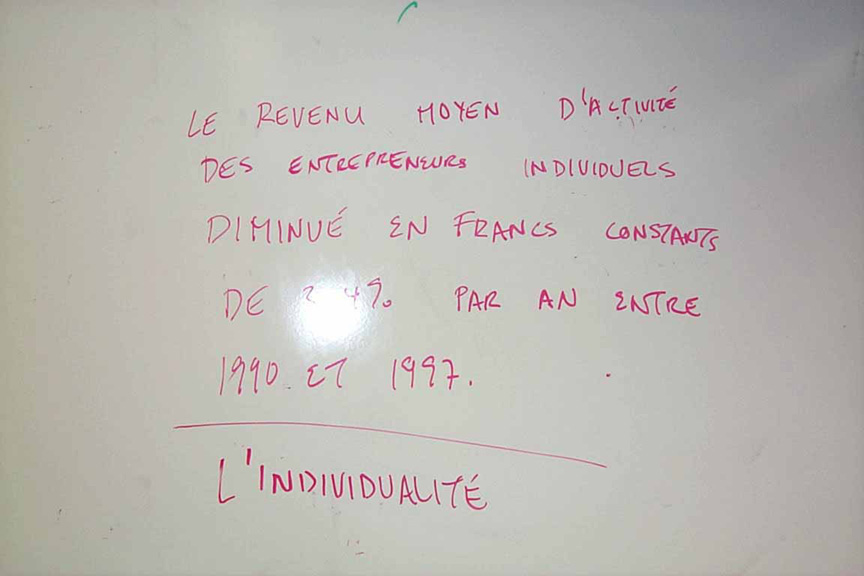 LE REVENU MOYEN D'ACTIVITÉ
DES ENTREPRENEURS INDIVIDUELS
DIMINUÉ EN FRANCS CONSTANTS
DE PAR AN ENTRE
1990 ET 1997.
L'INDIVIDUALITÉ